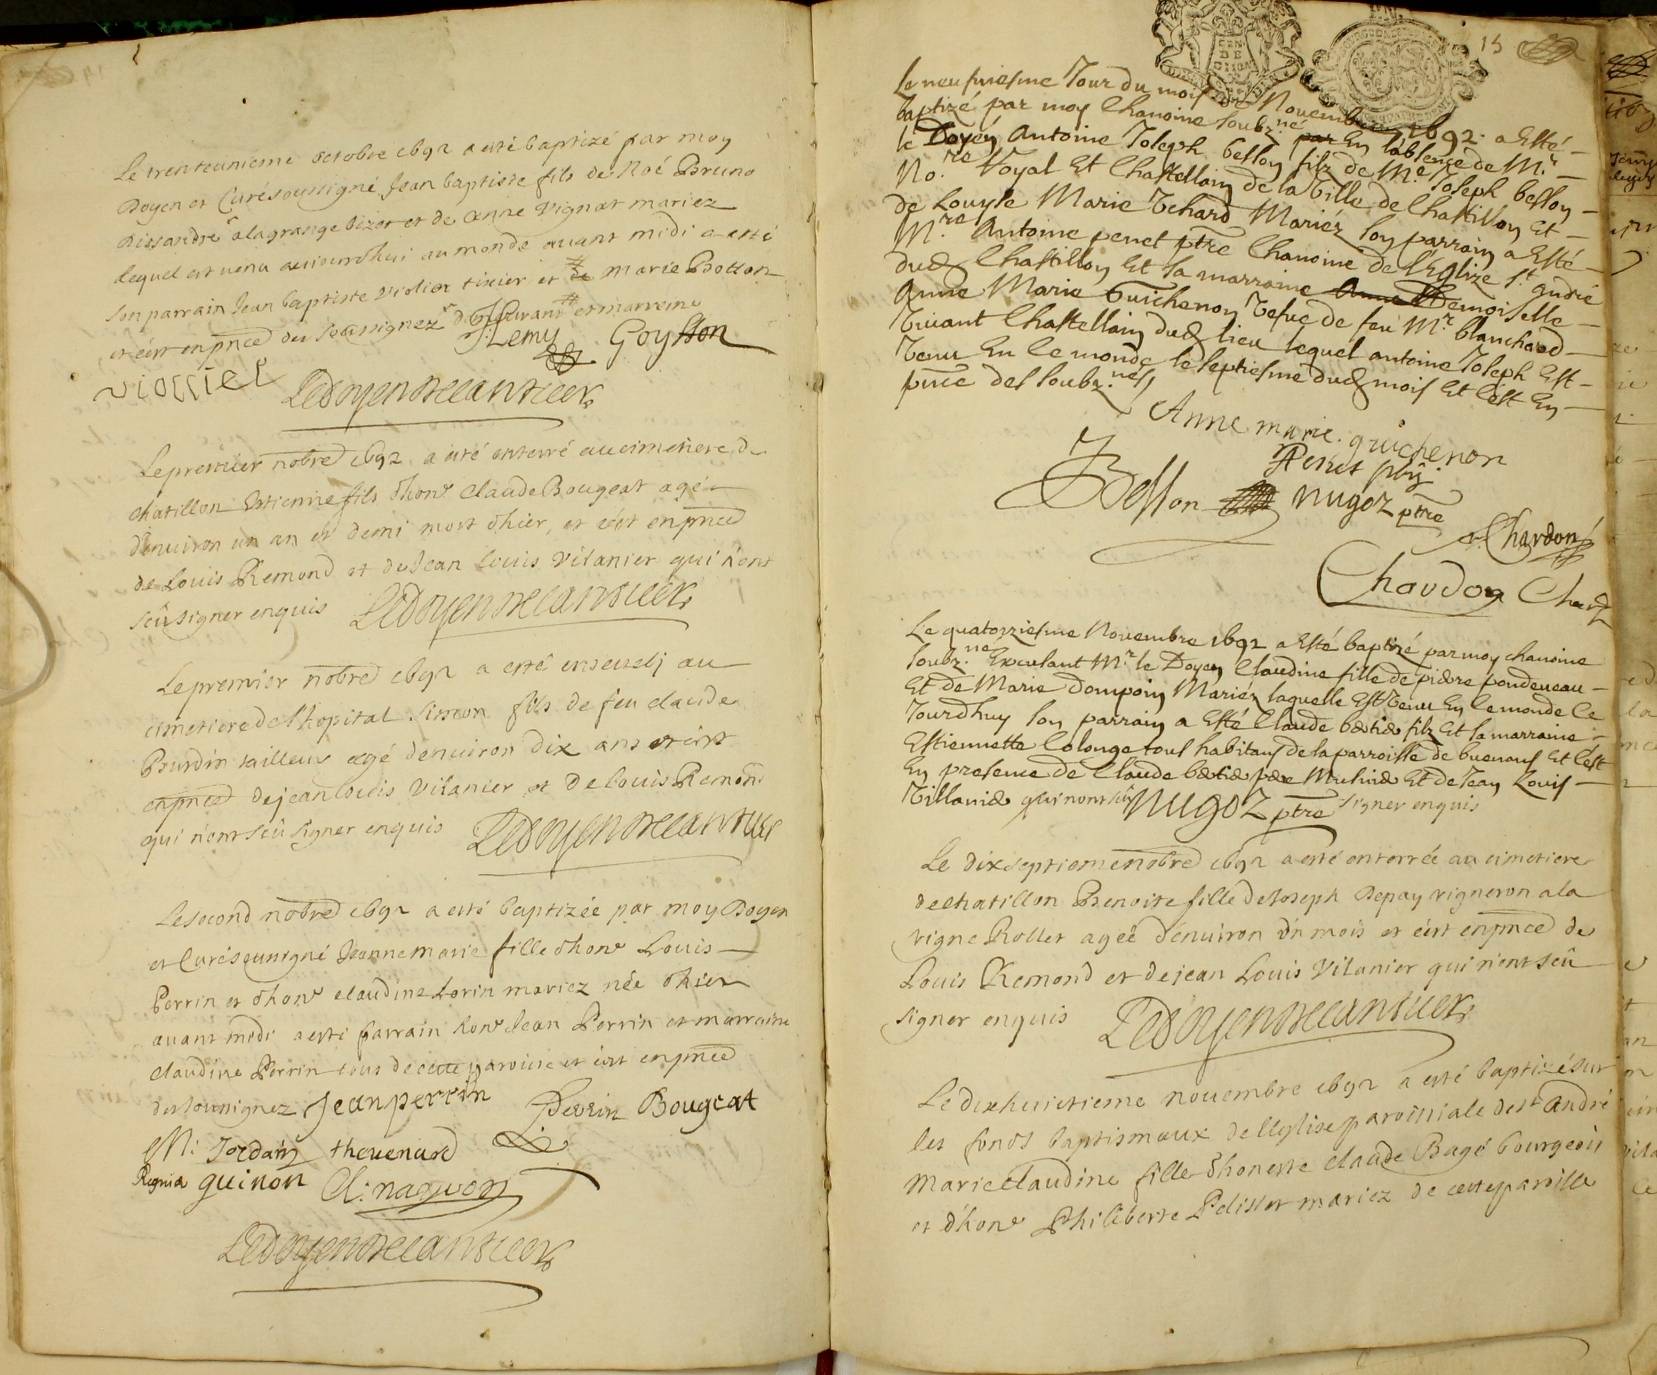 Le trenteunieme octobre 1692 a esté baptizé par moy
Doyen et Curé soussigné Jean baptiste fils de Noé Bruno
a la grange et de anne vignat mariez
lequel est venu aujourdhui au monde avant midi a esté
son parrain Jean baptiste violier et marie Botton
et marreine
et c'est en pnce des soussignez
Lemy Goysson
viollier
Ledoyen
Le premier nobre 1692 a esté enterré au cimetiere de
chatillon Estienne fils d'hone Claude Bougeat agé
d'environ un an et demi mort d'hier, et c'est en pnce
de Louis Remond et de Jean Louis Vilanier qui n'ont
sçû signer enquis Ledoyen
Le premier nobre 1692 a esté enseveli au
cimetiere de l'hopital Simeon fils de feu claude
Burdin tailleur agé d'environ dix ans et c'est
en pnce de jean louis Vilanier et de louis Remond
qui n'ont sçû signer enquis Ledoyen
Le second nobre 1692 a esté baptizée par moy Doyen
et Curé soussigné Jeanne marie fille d'hone Louis
Perrin et d'hone claudine Lorin mariez née d'hier
avant midi a esté parrain hone Jean Perrin et marraine
claudine Perrin tous de cette paroisse et c'est en pnce
des soussignez Jean perrin Perrin Bougeat
M: Jordain thevenard
guinon
Ledoyen
15
Le neufviesme Jour du mois de Novembre 1692 a Esté
baptizé par moy Chanoine soubz.né par En l'absence de Mr
le Doyen Antoine Joseph besson filz de Me Joseph besson
No.re Royal Et Chastellain de la Ville de Chastillon Et
de Louyse Marie Tchard Mariéz son parrain a Esté
M.re Antoine penet ptre Chanoine de l'Eglize St André
dud Chastillon Et sa marraine Demoiselle
Anne Marie Guichenon Vefve de feu Mr blanchard
Vivant Chastellain dud lieu lequel antoine Joseph Est
Venu En le monde le septiesme dud mois Et c'est En
pnce des soubz.nés
Anne marie guichenon
Penet
Besson nugoz ptre
Chardon
Chardon
Le quatorziesme Novembre 1692 a Esté baptizé par moy chanoine
soubz.né Excusant Mr le Doyen Claudine fille de pierre pondeveau
Et de Marie Dompoin Mariéz laquelle Est Venu En le monde le
Jourdhuy son parrain a Esté Claude filz Et sa marraine
Estiennette Colonge tous habitans de la parroisse de buenans Et c'est
En presence de Claude pere Et de Jean Louis
Villanie qui n'ont sçu nugoz ptre signer enquis
Le dixseptieme nobre 1692 a esté enterrée au cimetiere
de chatillon Benoite fille de Joseph Depay vigneron a la
vigne Rollet agée d'environ un mois et c'est en pnce de
Louis Remond et de jean Louis Vilanier qui n'ont sçû
signer enquis Ledoyen
Le dixhuictieme novembre 1692 a esté baptizé sur
les fonds baptismaux de l'eglise paroissiale de st andré
marie claudine fille d'honeste claude Bagé bourgeois
et d'hone Philiberte Pelisset mariez de cette paroisse